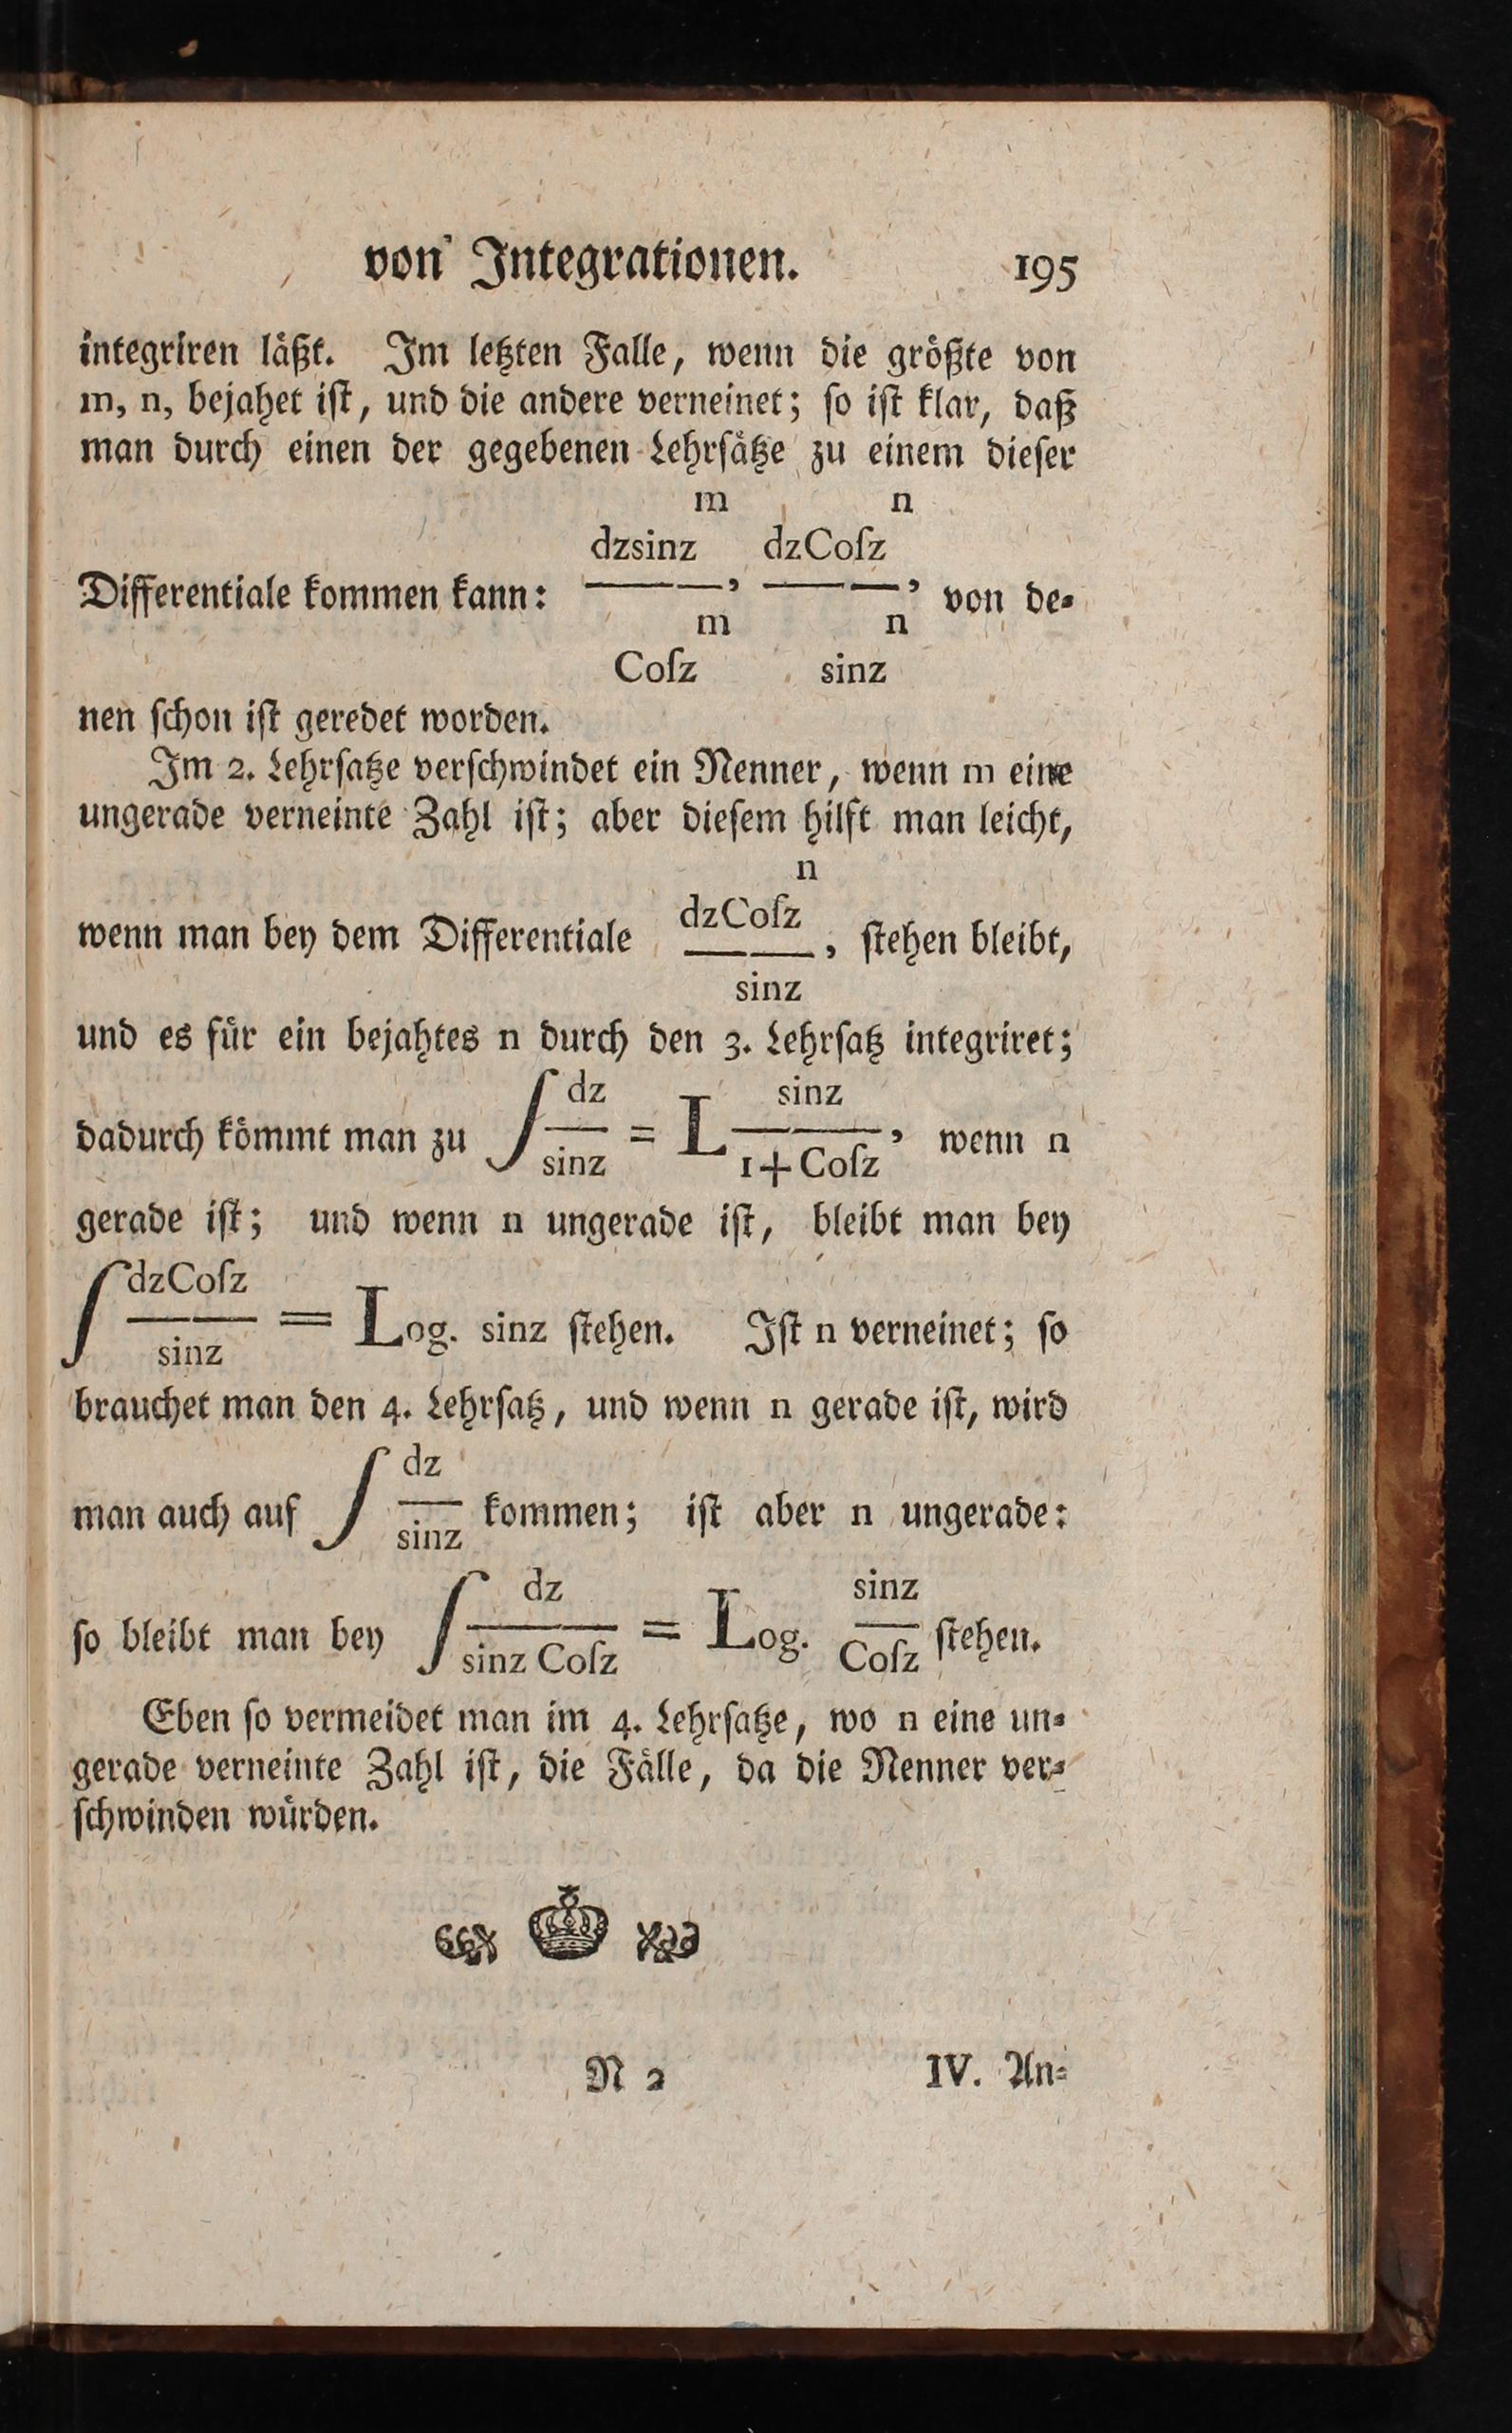 von Integrationen. 195
integriren läßt. Im letzten Falle, wenn die größte von
m, n, bejahet iſt, und die andere verneinet; ſo iſt klar, daß
man durch einen der gegebenen Lehrſätze zu einem dieſer
m n
dzsinz dzCoſz
Differentiale kommen kann: ———, ———, von de⸗
m n
Coſz sinz
nen ſchon iſt geredet worden.
Im 2. Lehrſatze verſchwindet ein Nenner, wenn m eine
ungerade verneinte Zahl iſt; aber dieſem hilft man leicht,
n
dzCoſz
wenn man bey dem Differentiale ———, ſtehen bleibt,
sinz
und es für ein bejahtes n durch den 3. Lehrſatz integriret;
dz sinz
dadurch kömmt man zu ∫ —— = L ———, wenn n
sinz 1+Coſz
gerade iſt; und wenn n ungerade iſt, bleibt man bey
dzCoſz
∫ ——— = Log. sinz ſtehen. Iſt n verneinet; ſo
sinz
brauchet man den 4. Lehrſatz, und wenn n gerade iſt, wird
dz
man auch auf ∫ —— kommen; iſt aber n ungerade:
sinz
dz sinz
ſo bleibt man bey ∫ ——— = Log. —— ſtehen.
sinz Coſz Coſz
Eben ſo vermeidet man im 4. Lehrſatze, wo n eine un⸗
gerade verneinte Zahl iſt, die Fälle, da die Nenner ver⸗
ſchwinden würden.
N 2 IV. An⸗